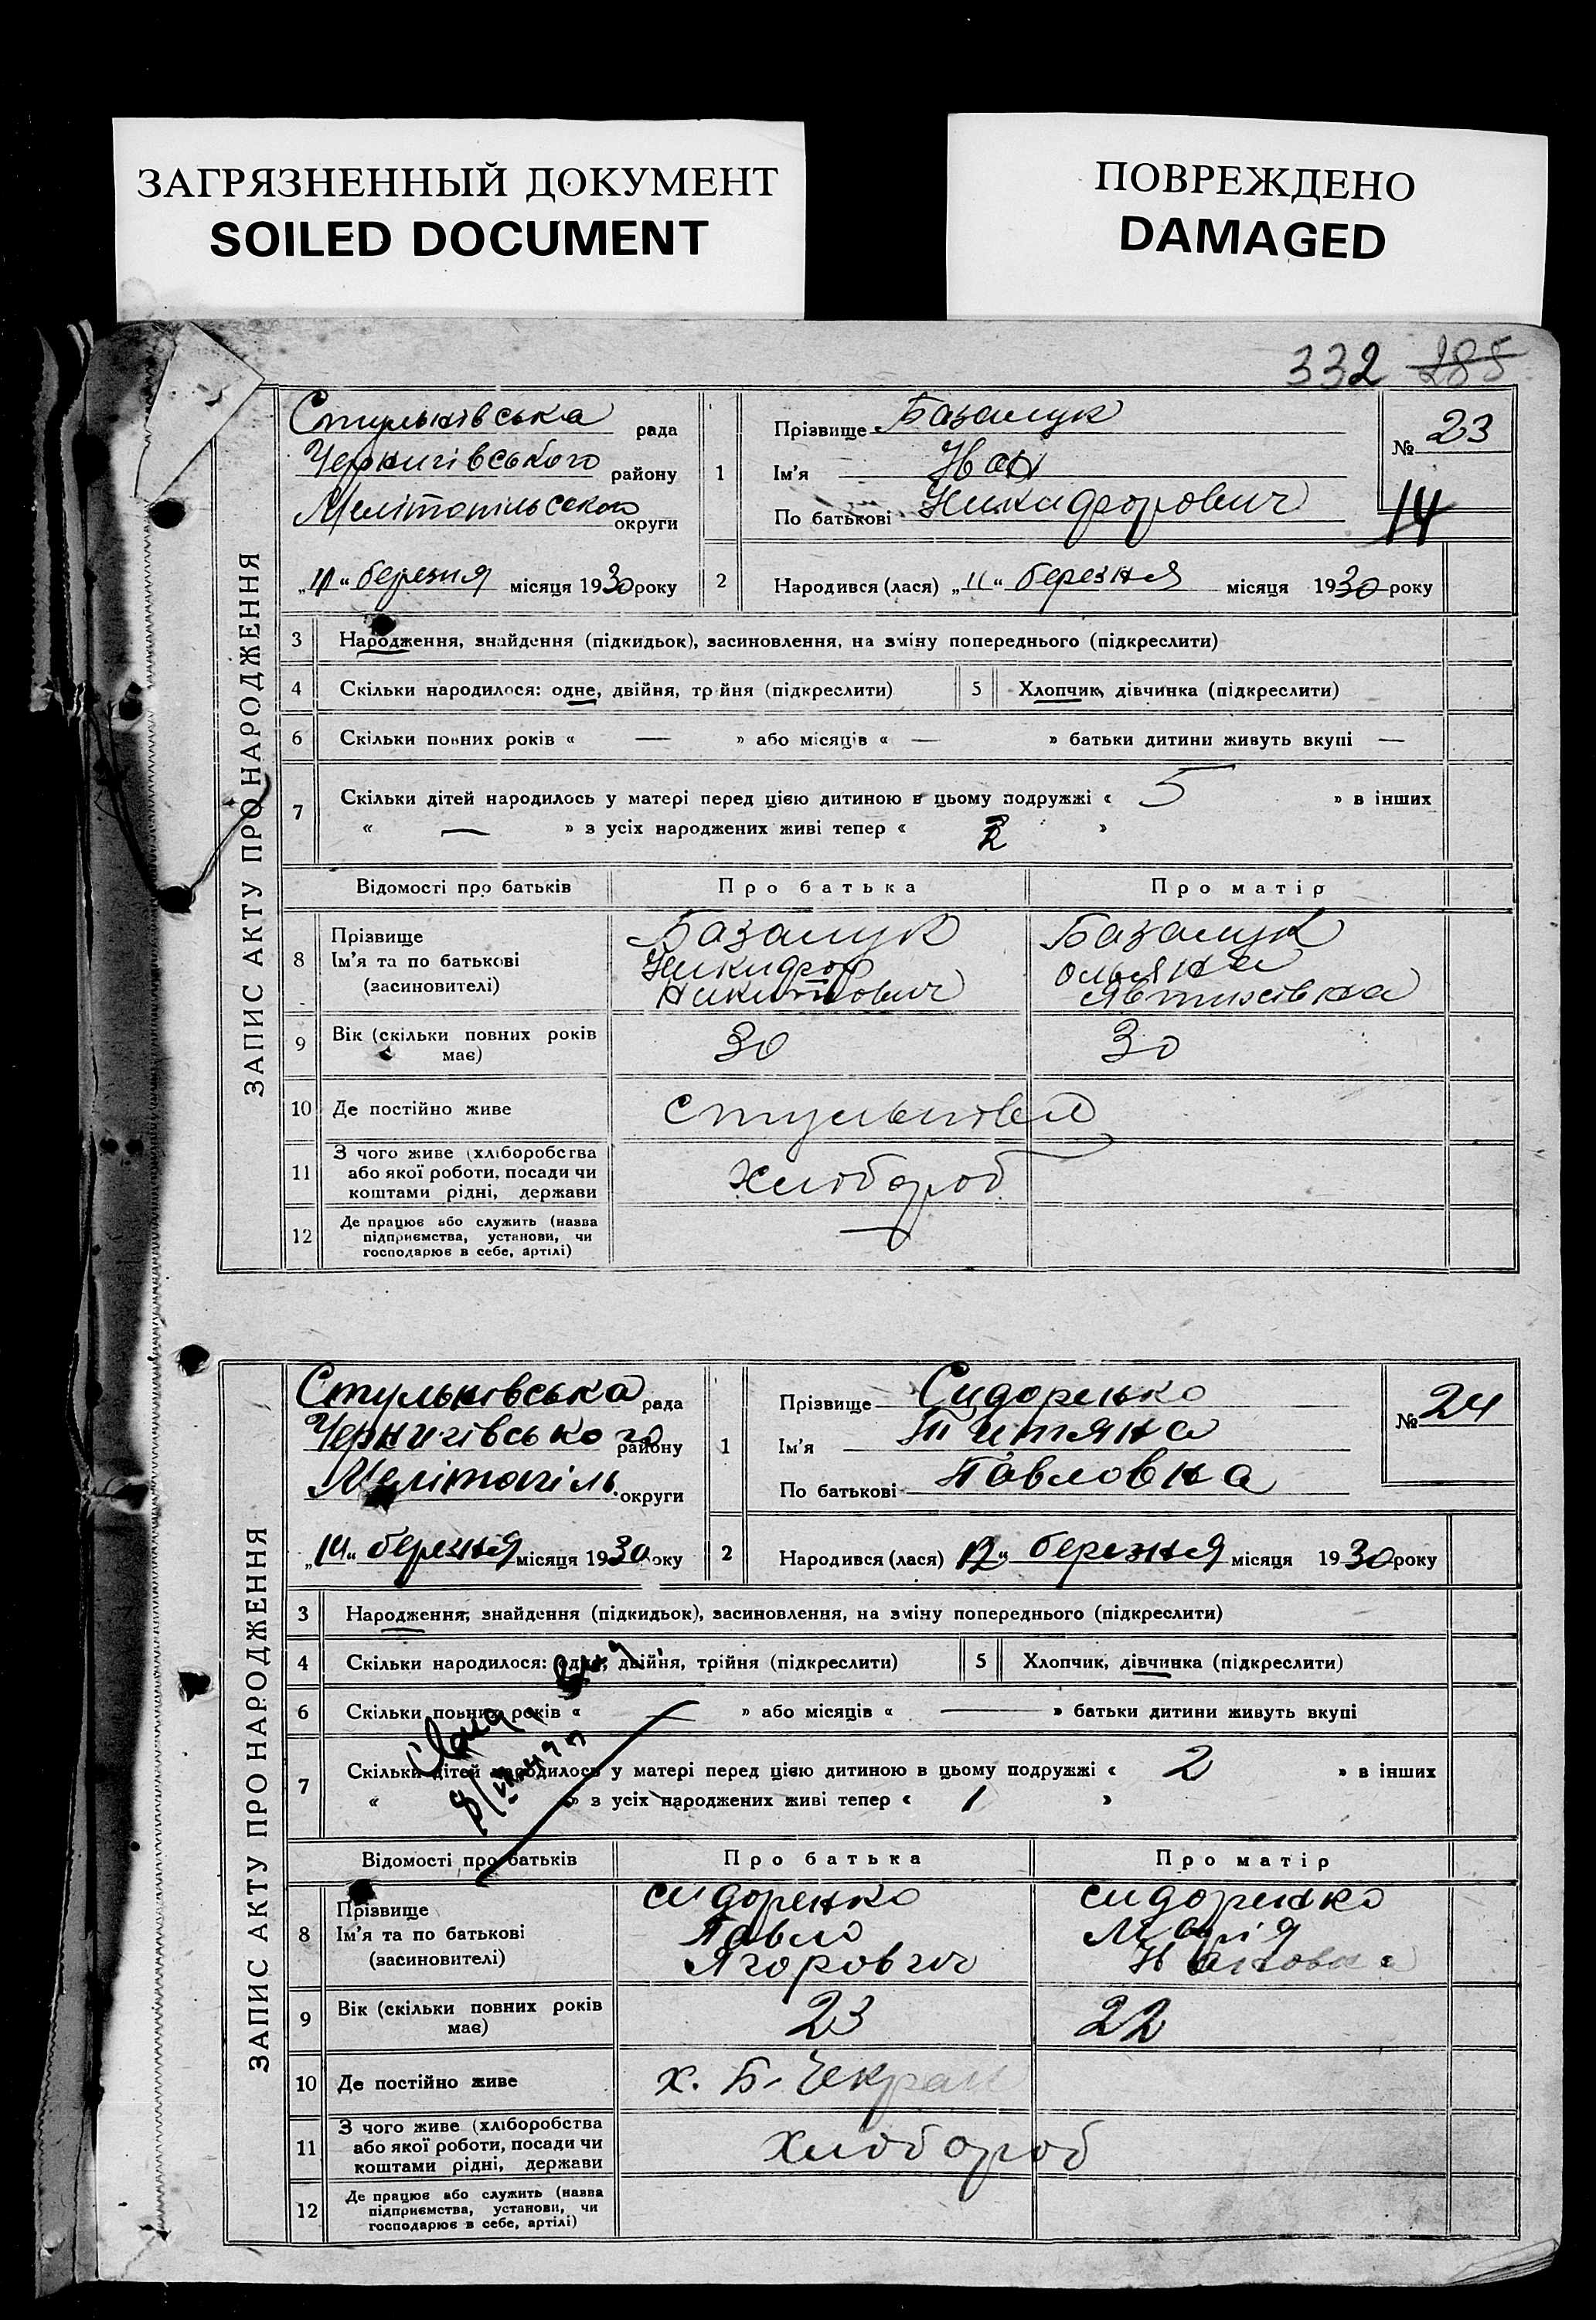 ЗАГРЯЗНЕННЫЙ ДОКУМЕНТ
SOILED DOCUMENT
ПОВРЕЖДЕНО
DAMAGED
332 285
ЗАПИС АКТУ ПРО НАРОДЖЕННЯ
Стульнівська рада
Чернигівського району
Мелітопільского округи
„11“ березня місяця 1930 року
1 Прізвище Базалук
Ім'я Иван
По батькові Никифорович
№ 23
14
2 Народився (лася) „11“ березня місяця 1930 року
3 Народження, знайдення (підкидьок), засиновлення, на зміну попереднього (підкреслити)
4 Скільки народилося: одне, двійня, трійня (підкреслити) 5 Хлопчик, дівчинка (підкреслити)
6 Скільки повних років « — » або місяців « — » батьки дитини живуть вкупі —
7 Скільки дітей народилось у матері перед цією дитиною в цьому подружжі « 5 » в інших
« — » з усіх народжених живі тепер « 2 »
Відомості про батьків Про батька Про матір
8 Прізвище
Ім'я та по батькові
(засиновителі)
Базалук
Никифор
Никитович
Базалук
Ольяна
Явтихівна
9 Вік (скільки повних років
має)
30 30
10 Де постійно живе Стульневе
11 З чого живе (хліборобства
або якої роботи, посади чи
коштами рідні, держави
Хлібороб
12 Де працює або служить (назва
підприємства, установи, чи
господарює в себе, артілі)
—
ЗАПИС АКТУ ПРО НАРОДЖЕННЯ
Стульнівська рада
Чернигівського району
Мелітопіль. округи
„14“ березня місяця 1930 року
1 Прізвище Сидоренко
Ім'я Титяна
По батькові Павловна
№ 24
2 Народився (лася) 12“ березня місяця 1930 року
3 Народження, знайдення (підкидьок), засиновлення, на зміну попереднього (підкреслити)
4 Скільки народилося: одне, двійня, трійня (підкреслити) 5 Хлопчик, дівчинка (підкреслити)
6 Скільки повних років « — » або місяців « — » батьки дитини живуть вкупі
7 Скільки дітей народилось у матері перед цією дитиною в цьому подружжі « 2 » в інших
« » з усіх народжених живі тепер « 1 »
Відомості про батьків Про батька Про матір
8 Прізвище
Ім'я та по батькові
(засиновителі)
Сидоренко
Павло
Ягорович
Сидоренко
Марія
Ивановна
9 Вік (скільки повних років
має)
23 22
10 Де постійно живе х. Б. Чекрак
11 З чого живе (хліборобства
або якої роботи, посади чи
коштами рідні, держави
Хлібороб
12 Де працює або служить (назва
підприємства, установи, чи
господарює в себе, артілі)